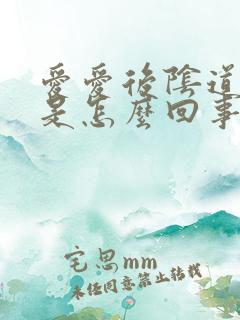 愛愛後陰道
是怎麼回事
宅思mm
未任同意禁止转载